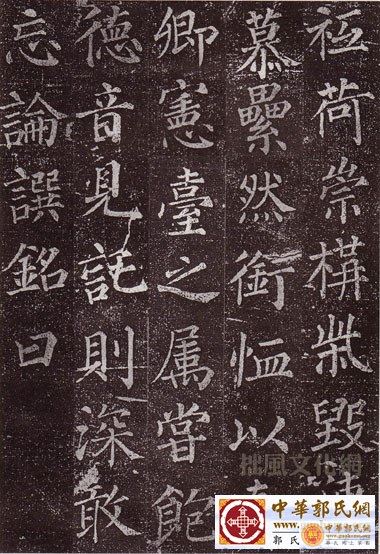 祗荷崇構柴毀
慕纍然銜恤以
卿憲臺之属嘗飽
德音見託則深敢
忘論譔銘曰
拙風文化網
中華郭氏網
www.
郭氏
中華郭氏網